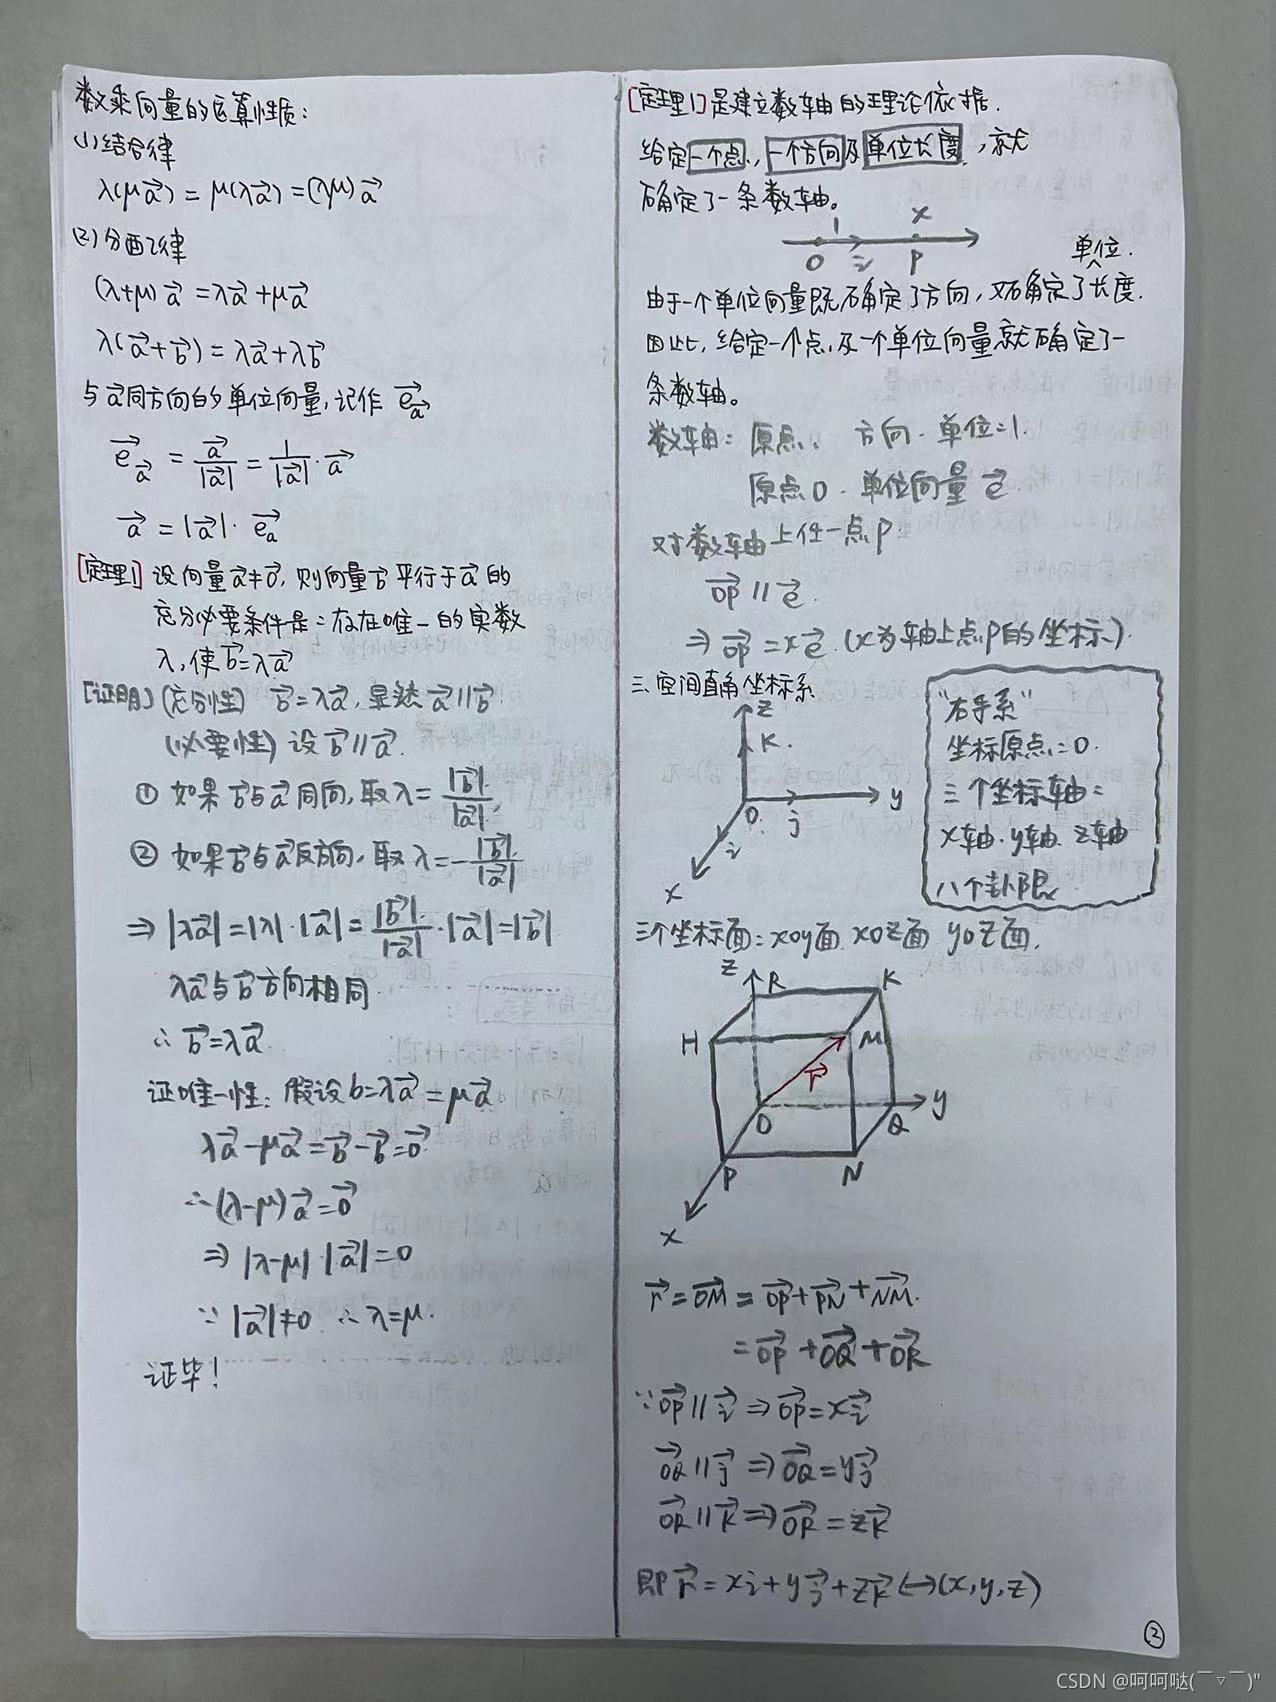 数乘向量的运算性质:
(1)结合律
λ(μa⃗) = μ(λa⃗) = (λμ)a⃗
(2)分配律
(λ+μ)a⃗ = λa⃗ + μa⃗
λ(a⃗+b⃗) = λa⃗ + λb⃗
与a⃗同方向的单位向量,记作 e⃗a⃗
e⃗a⃗ = a⃗/|a⃗| = 1/|a⃗| · a⃗
a⃗ = |a⃗| · e⃗a
[定理1] 设向量a⃗≠0⃗, 则向量b⃗平行于a⃗的
充分必要条件是:存在唯一的实数
λ,使b⃗=λa⃗
[证明] (充分性) b⃗=λa⃗, 显然 a⃗∥b⃗
(必要性) 设b⃗∥a⃗.
① 如果b⃗与a⃗同向,取λ=|b⃗|/|a⃗|,
② 如果b⃗与a⃗反方向,取λ=-|b⃗|/|a⃗|
⇒ |λa⃗|=|λ|·|a⃗|=|b⃗|/|a⃗|·|a⃗|=|b⃗|
λa⃗与b⃗方向相同
∴ b⃗=λa⃗
证唯一性: 假设b=λa⃗=μa⃗
λa⃗-μa⃗=b⃗-b⃗=0⃗
∴(λ-μ)a⃗=0⃗
⇒ |λ-μ|·|a⃗|=0
∵ |a⃗|≠0 ∴λ=μ.
证毕!
[定理1]是建立数轴的理论依据.
给定一个点,一个方向及单位长度,就
确定了一条数轴。
1 x
O i P
单位.
由于一个单位向量既确定了方向,又确定了长度.
因此,给定一个点及一个单位向量就确定了一
条数轴。
数轴: 原点. 方向. 单位=1.
原点O. 单位向量 e⃗.
对数轴上任一点P
OP⃗∥e⃗.
⇒ OP⃗=xe⃗.(x为轴上点P的坐标).
三.空间直角坐标系
z
K.
O j y
i
x
"右手系"
坐标原点:O.
三个坐标轴:
x轴.y轴 z轴
八个卦限.
三个坐标面: xoy面 xoz面 yoz面.
z R K
H M
r⃗
O Q y
P N
x
r⃗=OM⃗=OP⃗+PN⃗+NM⃗.
=OP⃗+OQ⃗+OR⃗
∵OP⃗∥i⃗⇒OP⃗=xi⃗
OQ⃗∥j⃗⇒OQ⃗=yj⃗
OR⃗∥K⃗⇒OR⃗=zK⃗
即r⃗=xi+yj⃗+zK⃗↔(x,y,z)
②
CSDN @呵呵哒(￣▽￣)"